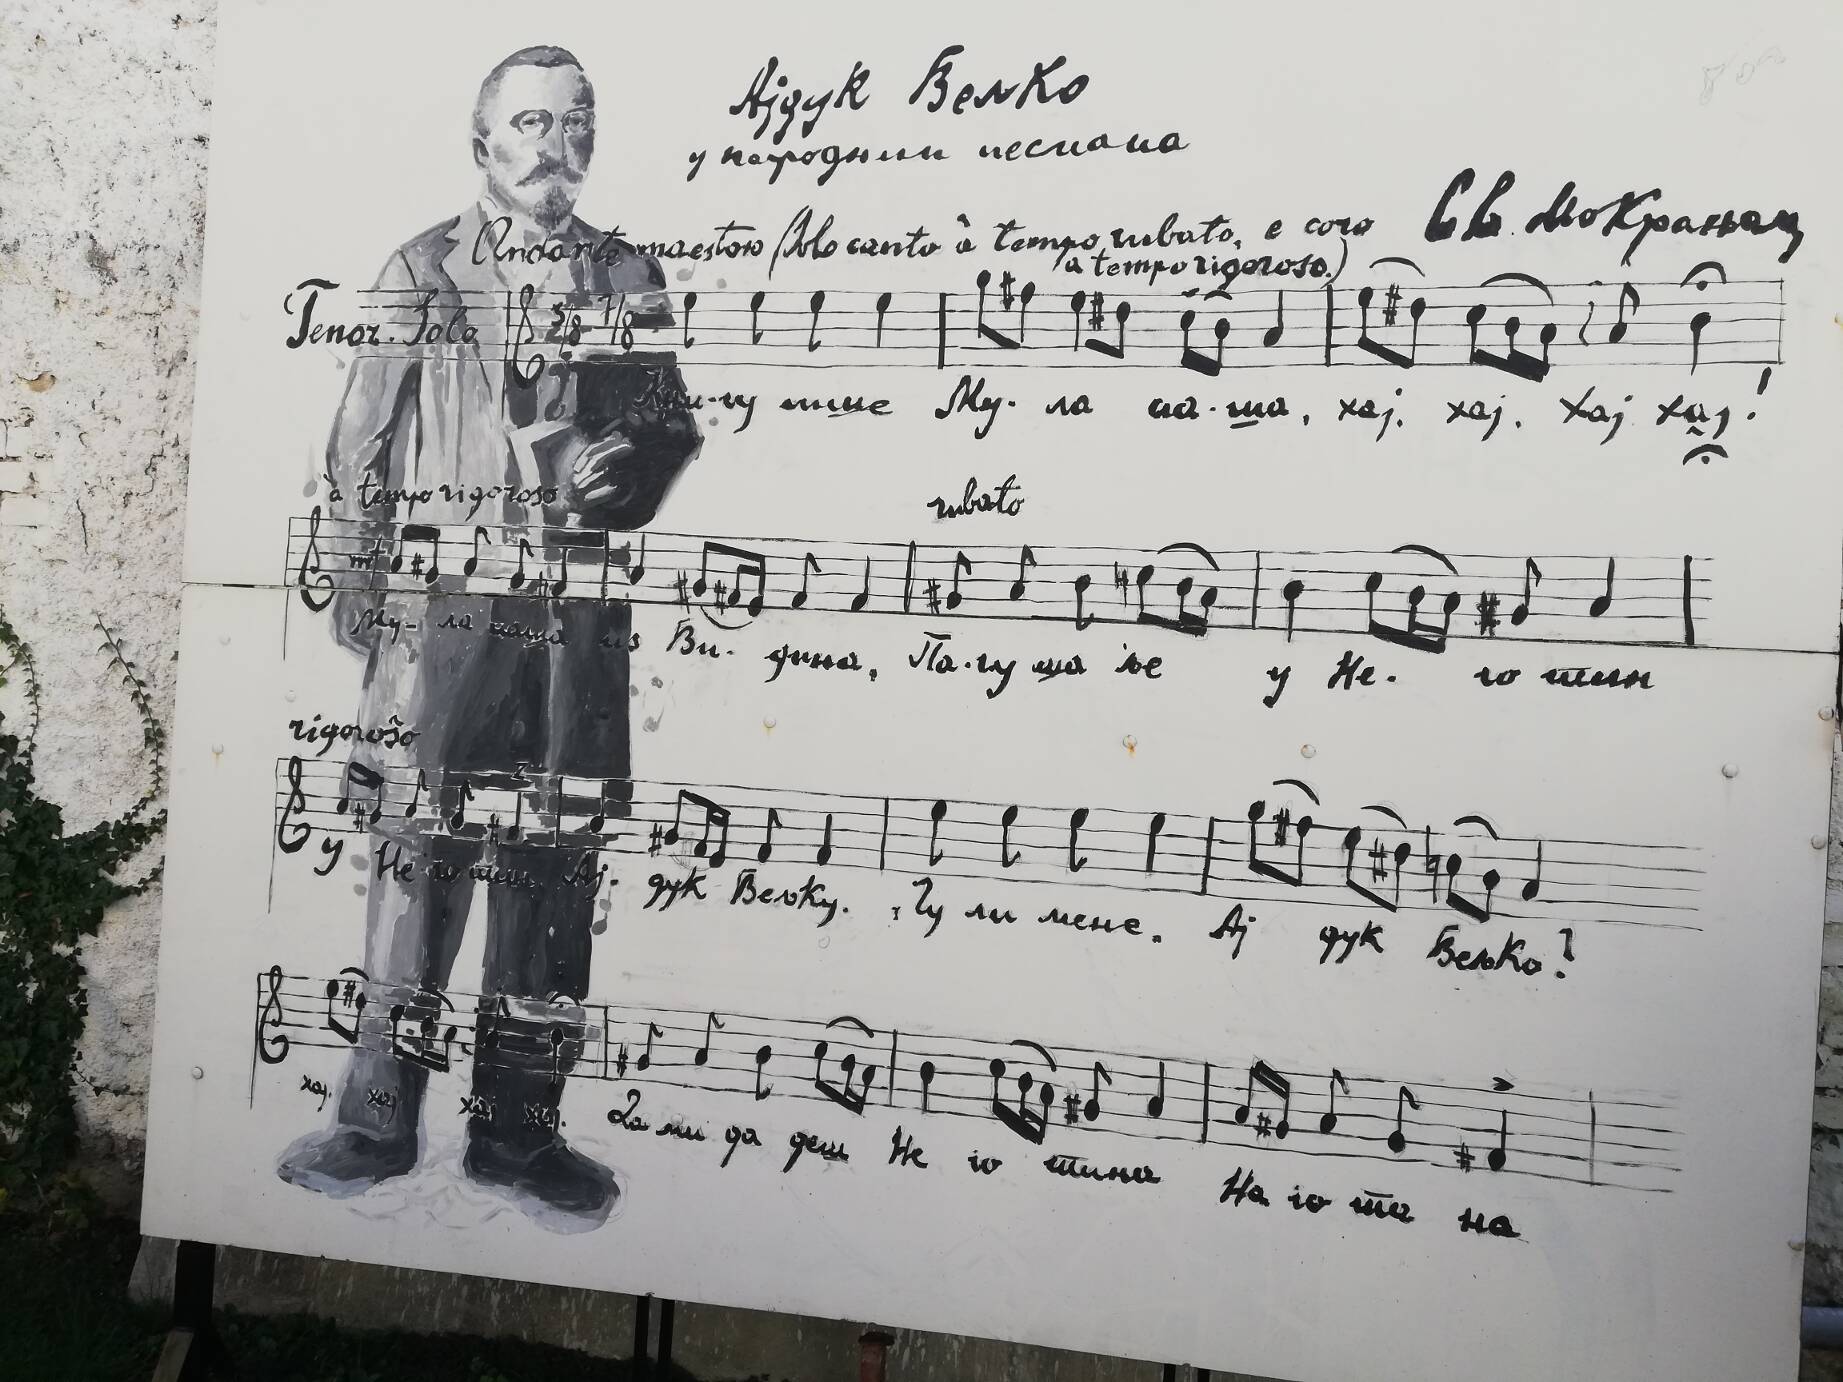 Ајдук Вељко
у народним песмама
Св. Мокрањац
Andante maestoso (Solo canto à tempo rubato, e coro
a tempo rigoroso.)
Tenor. Solo
5/8 7/8
Књи-гу пише Му- ла па-ша, хај, хај, хај хај!
à tempo rigoroso
rubato
mf
Му- ла паша из Ви- дина, Па-гу ша ље у Не- го тин
rigoroso
У Не го тин Ај- дук Вељку. Чу ли мене, Ај дук Вељко?
хај. хај хај хај. Да ми да деш Не го тина На го та на